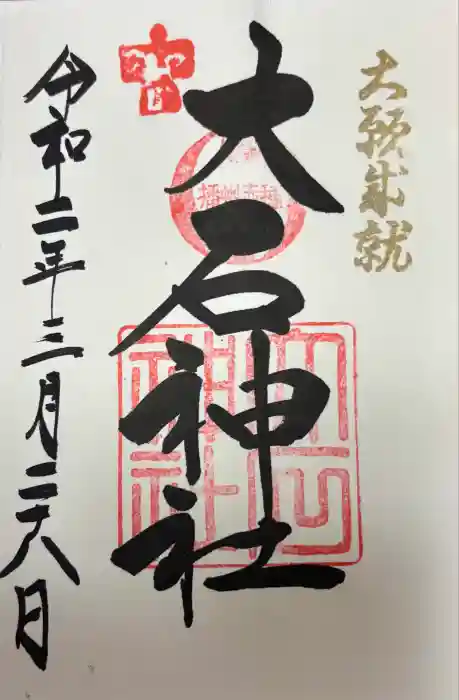 大願成就
大石神社
播州赤穂
大石神社
令和二年三月二八日